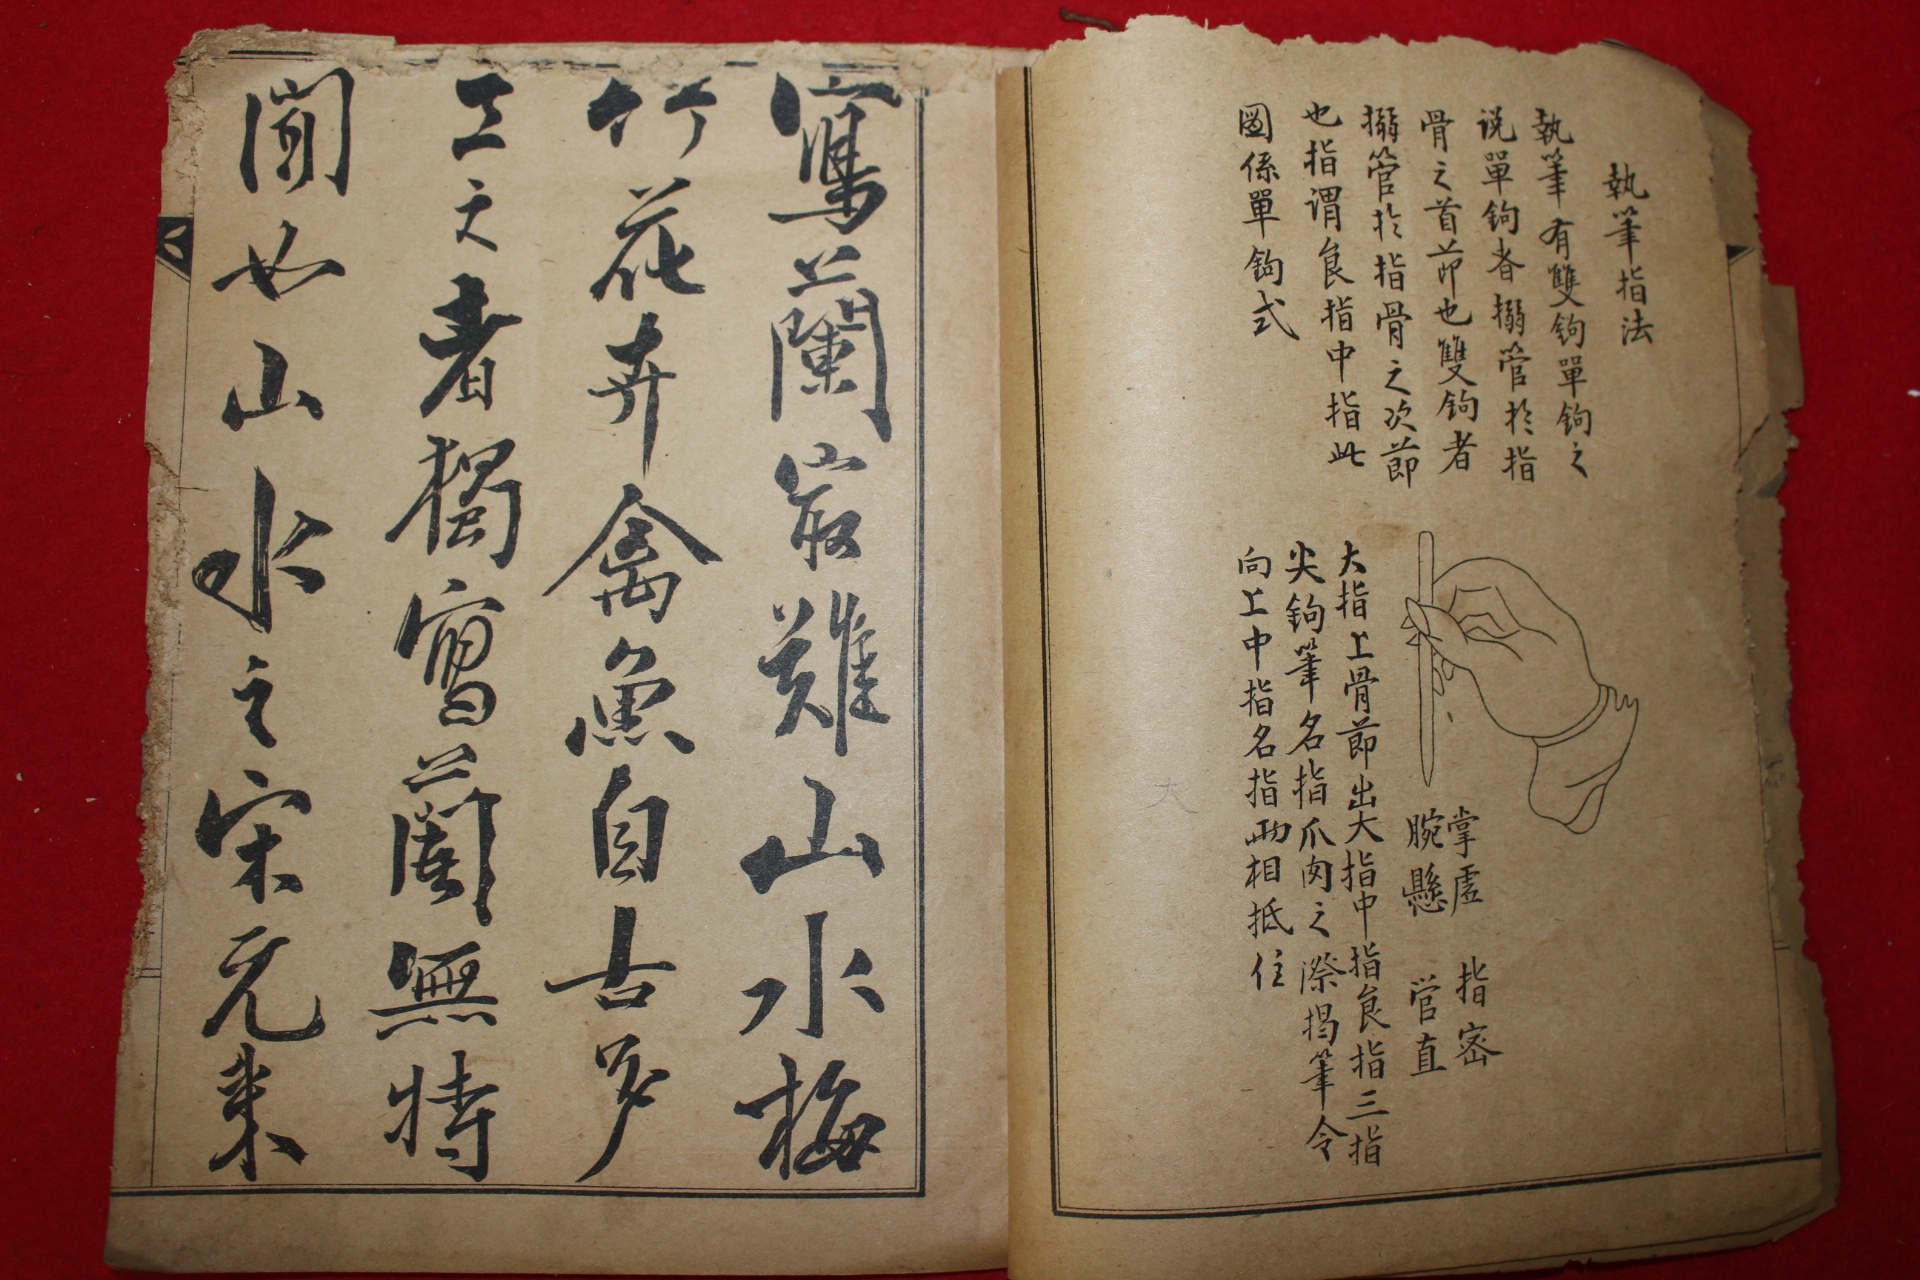 執筆指法
執筆有雙鉤單鉤之
说單鉤者搦管扵指
骨之首節也雙鉤者
搦管扵指骨之次節
也指谓食指中指此
圖係單鉤式
掌虛 指密
腕懸 管直
大指上骨節出大指中指食指三指
尖鉤筆名指爪肉之際揭筆令
向上中指名指兩相抵住
寫蘭㝡難山水梅
竹花卉禽魚自古多
工之者獨寫蘭無特
聞也山水之宋元来